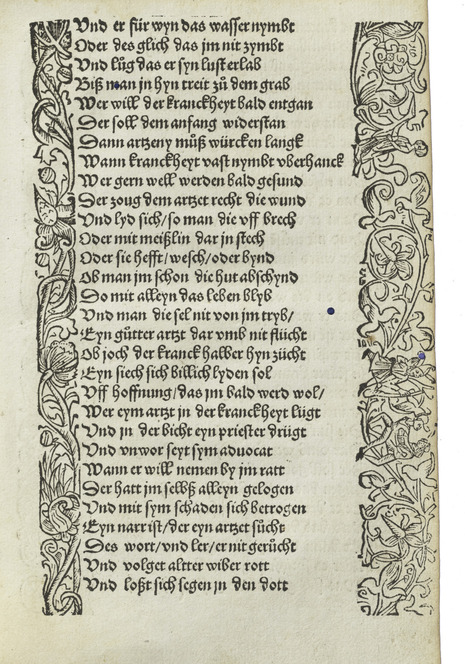 Vnd er für wyn das wasser nymbt
Oder des glich das jm nit zymbt
Vnd lůg das er syn lust erlab
Biß man jn hyn treit zů dem grab
Wer will der kranckheyt bald entgan
Der soll dem anfang widerstan
Dann artzeny můß würcken langk
Wann kranckheyt vast nymbt vberhanck
Wer gern well werden bald gesund
Der zoug dem artzet recht die wund
Vnd lyd sich/so man die vff brech
Oder mit meißlin dar jn stech
Oder sie hefft/wesch/oder bynd
Ob man jm schon die hut abschynd
Do mit alleyn das leben blyb
Vnd man die sel nit von jm tryb/
Eyn gůtter artzt dar vmb nit flücht
Ob joch der kranck halber hyn zücht
Eyn siech sich billich lyden sol
Vff hoffnung/das jm bald werd wol/
Wer eym artzt jn der kranckheyt lügt
Vnd jn der bicht eyn priester drügt
Vnd vnwor seyt sym aduocat
Wann er will nemen by jm ratt
Der hatt jm selbß alleyn gelogen
Vnd mit sym schaden sich betrogen
Eyn narr ist/der eyn artzet sůcht
Des wort/vnd ler/er nit gerůcht
Vnd volget altter wiber rott
Vnd loßt sich segen jn den dott